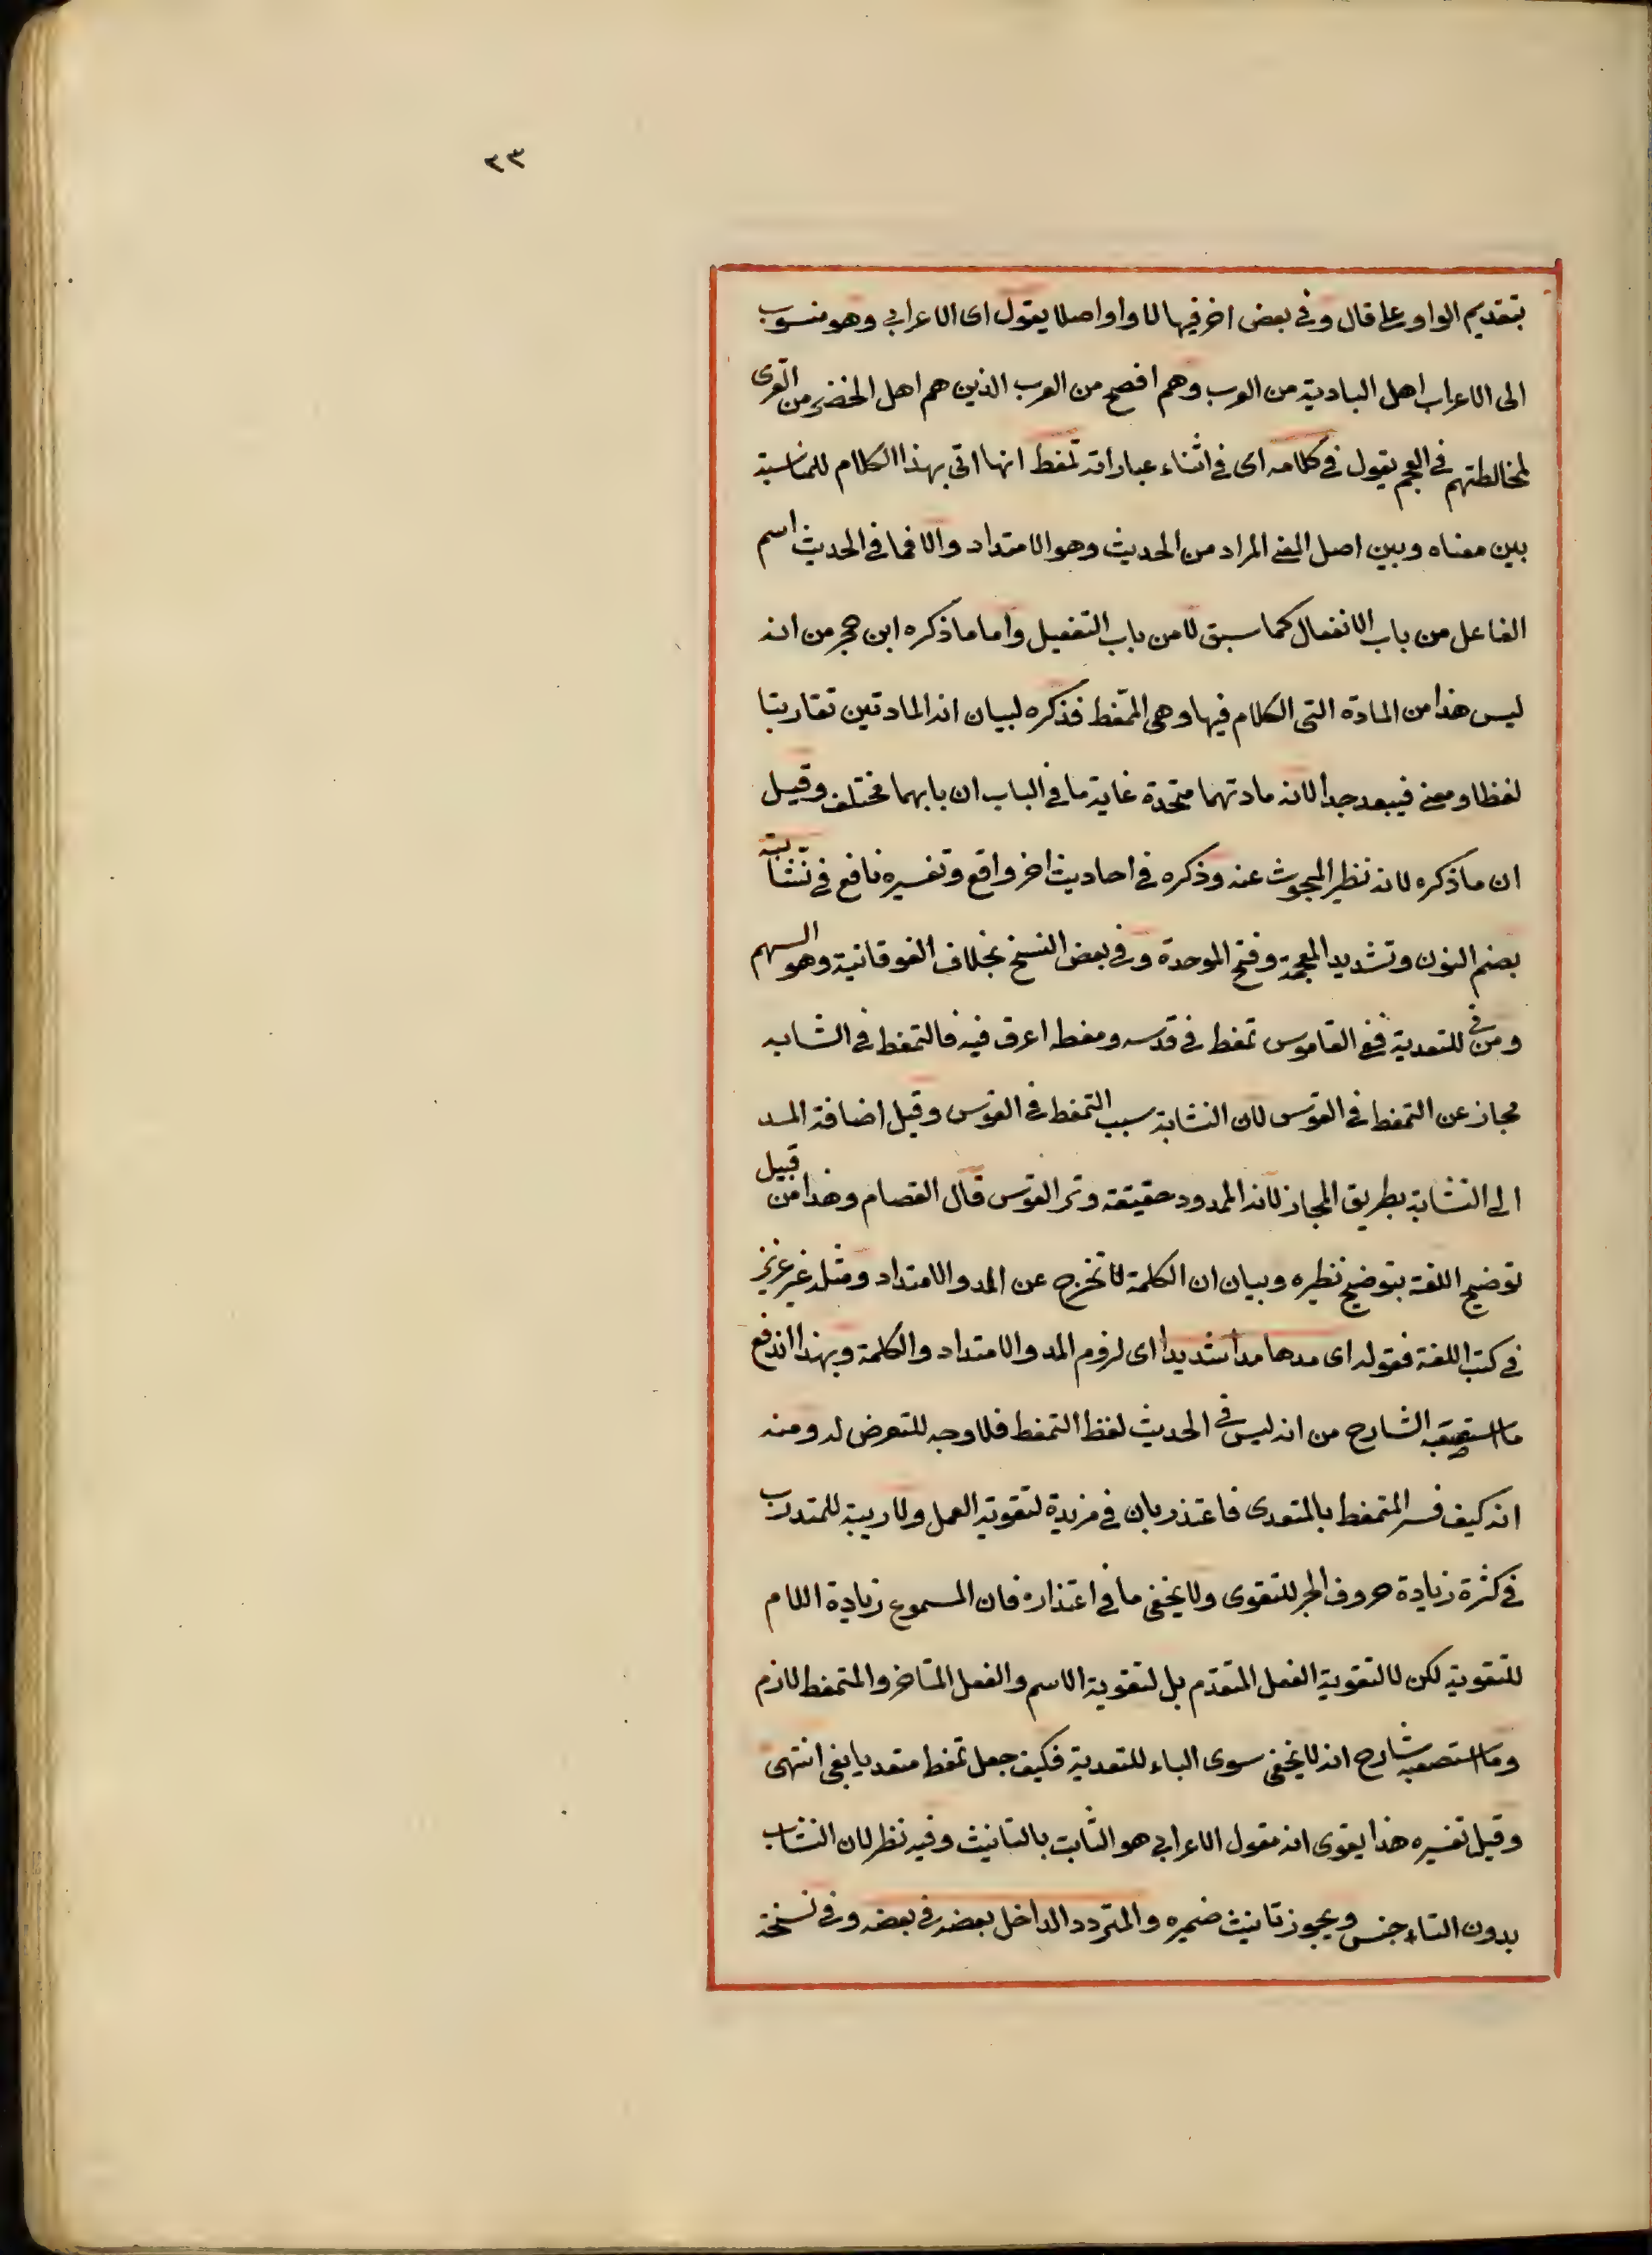 ٢٣
بتقديم الواو على قال وفي بعض اخر فيها لا واوا اصلا يقول اى الاعرابي وهو منسوب
الى الاعراب اهل البادية من العرب وهم افصح من العرب الذين هم اهل الحضر من القرى
لمخالطتهم في العجم يقول في كلامه اى في اثناء عباراته تمغط انها اتى بهذا الكلام للمناسبة
بين معناه وبين اصل المعنى المراد من الحديث وهو الامتداد والا فما في الحديث اسم
الفاعل من باب الانفعال كما سبق لا من باب التفعيل واما ما ذكره ابن حجر من انه
ليس هذا من المادة التى الكلام فيها وهى الممّغط فذكره لبيان انه المادتين تقاربتا
لفظا ومعنى فيبعد جدا لانه مادتهما متحدة غاية ما في الباب ان بابهما مختلف وقيل
ان ما ذكره لانه نظير المبحوث عنه وذكره في احاديث اخر واقع وتفسيره نافع في نشابة
بضم النون وتشديد المعجمة وفتح الموحدة وفي بعض النسخ بخلاف الفوقانية وهو السهم
ومن في للتعدية ففي القاموس تمغط في قوسه ومغط اغرق فيه فالتمغط في الشابه
مجاز عن التمغط في القوس لان النشابة سبب التمغط في القوس وقيل اضافة المد
الى النشابة بطريق المجاز لانه الممدود حقيقة وتر القوس قال العصام وهذا من قبيل
توضيح اللغة بتوضيح نظيره وبيان ان الكلمة لا تخرج عن المد والامتداد ومثله غير عزيز
في كتب اللغة فقوله اى مدها مدا شديدا اى لزوم المد والامتداد والكلمة وبهذا اندفع
ما استصعبه الشارح من انه ليس في الحديث لفظ التمغط فلا وجه للتعرض له ومنه
انه كيف فسر المتمغط بالمتعدى فاعتذر بان في مزيدة لتقوية العمل ولا ريبة للمتدرب
في كثرة زيادة حروف الجر للتقوى ولا يخفى ما في اعتذاره فان المسموع زيادة اللام
للتقوية لكن لا لتقوية الفعل المتقدم بل لتقوية الاسم والفعل المتاخر والمتمغط لازم
وما استصعبه شارح انه لا يخفى سوى الباء للتعدية فكيف جعل تمغط متعديا بفى انتهى
وقيل تفسيره هذا يقوى انه مقول الاعرابي هو الثابت بالتانيث وفيه نظر لان النشاب
بدون التاء جنس ويجوز تانيث ضميره والمتردد الداخل بعضه في بعضه وفي نسخة